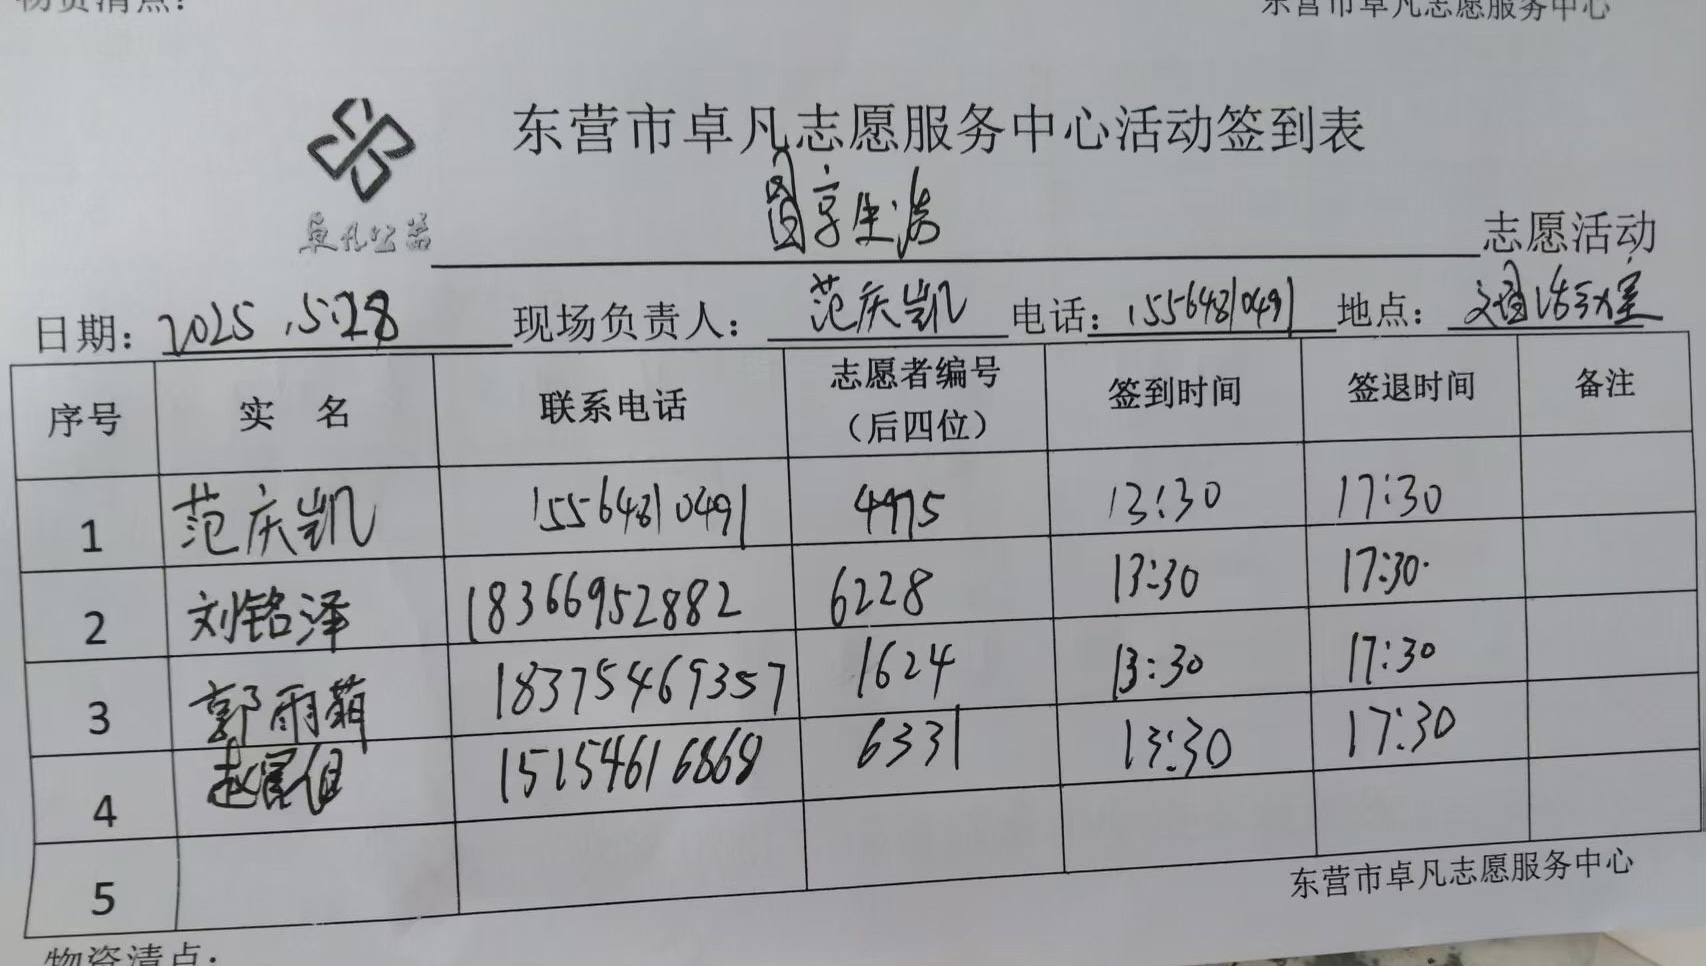 物资清点：
东营市卓凡志愿服务中心
东营市卓凡志愿服务中心活动签到表
卓凡公益
享生活 志愿活动
日期：2025.5.28 现场负责人：范庆凯 电话：15564810491 地点：活动室
序号 实 名 联系电话 志愿者编号（后四位） 签到时间 签退时间 备注
1 范庆凯 15564810491 4975 13:30 17:30
2 刘铭泽 18366952882 6228 13:30 17:30.
3 郭雨萌 18375469357 1624 13:30 17:30
4 赵 15154616868 6331 13:30 17:30
5
东营市卓凡志愿服务中心
物资清点：